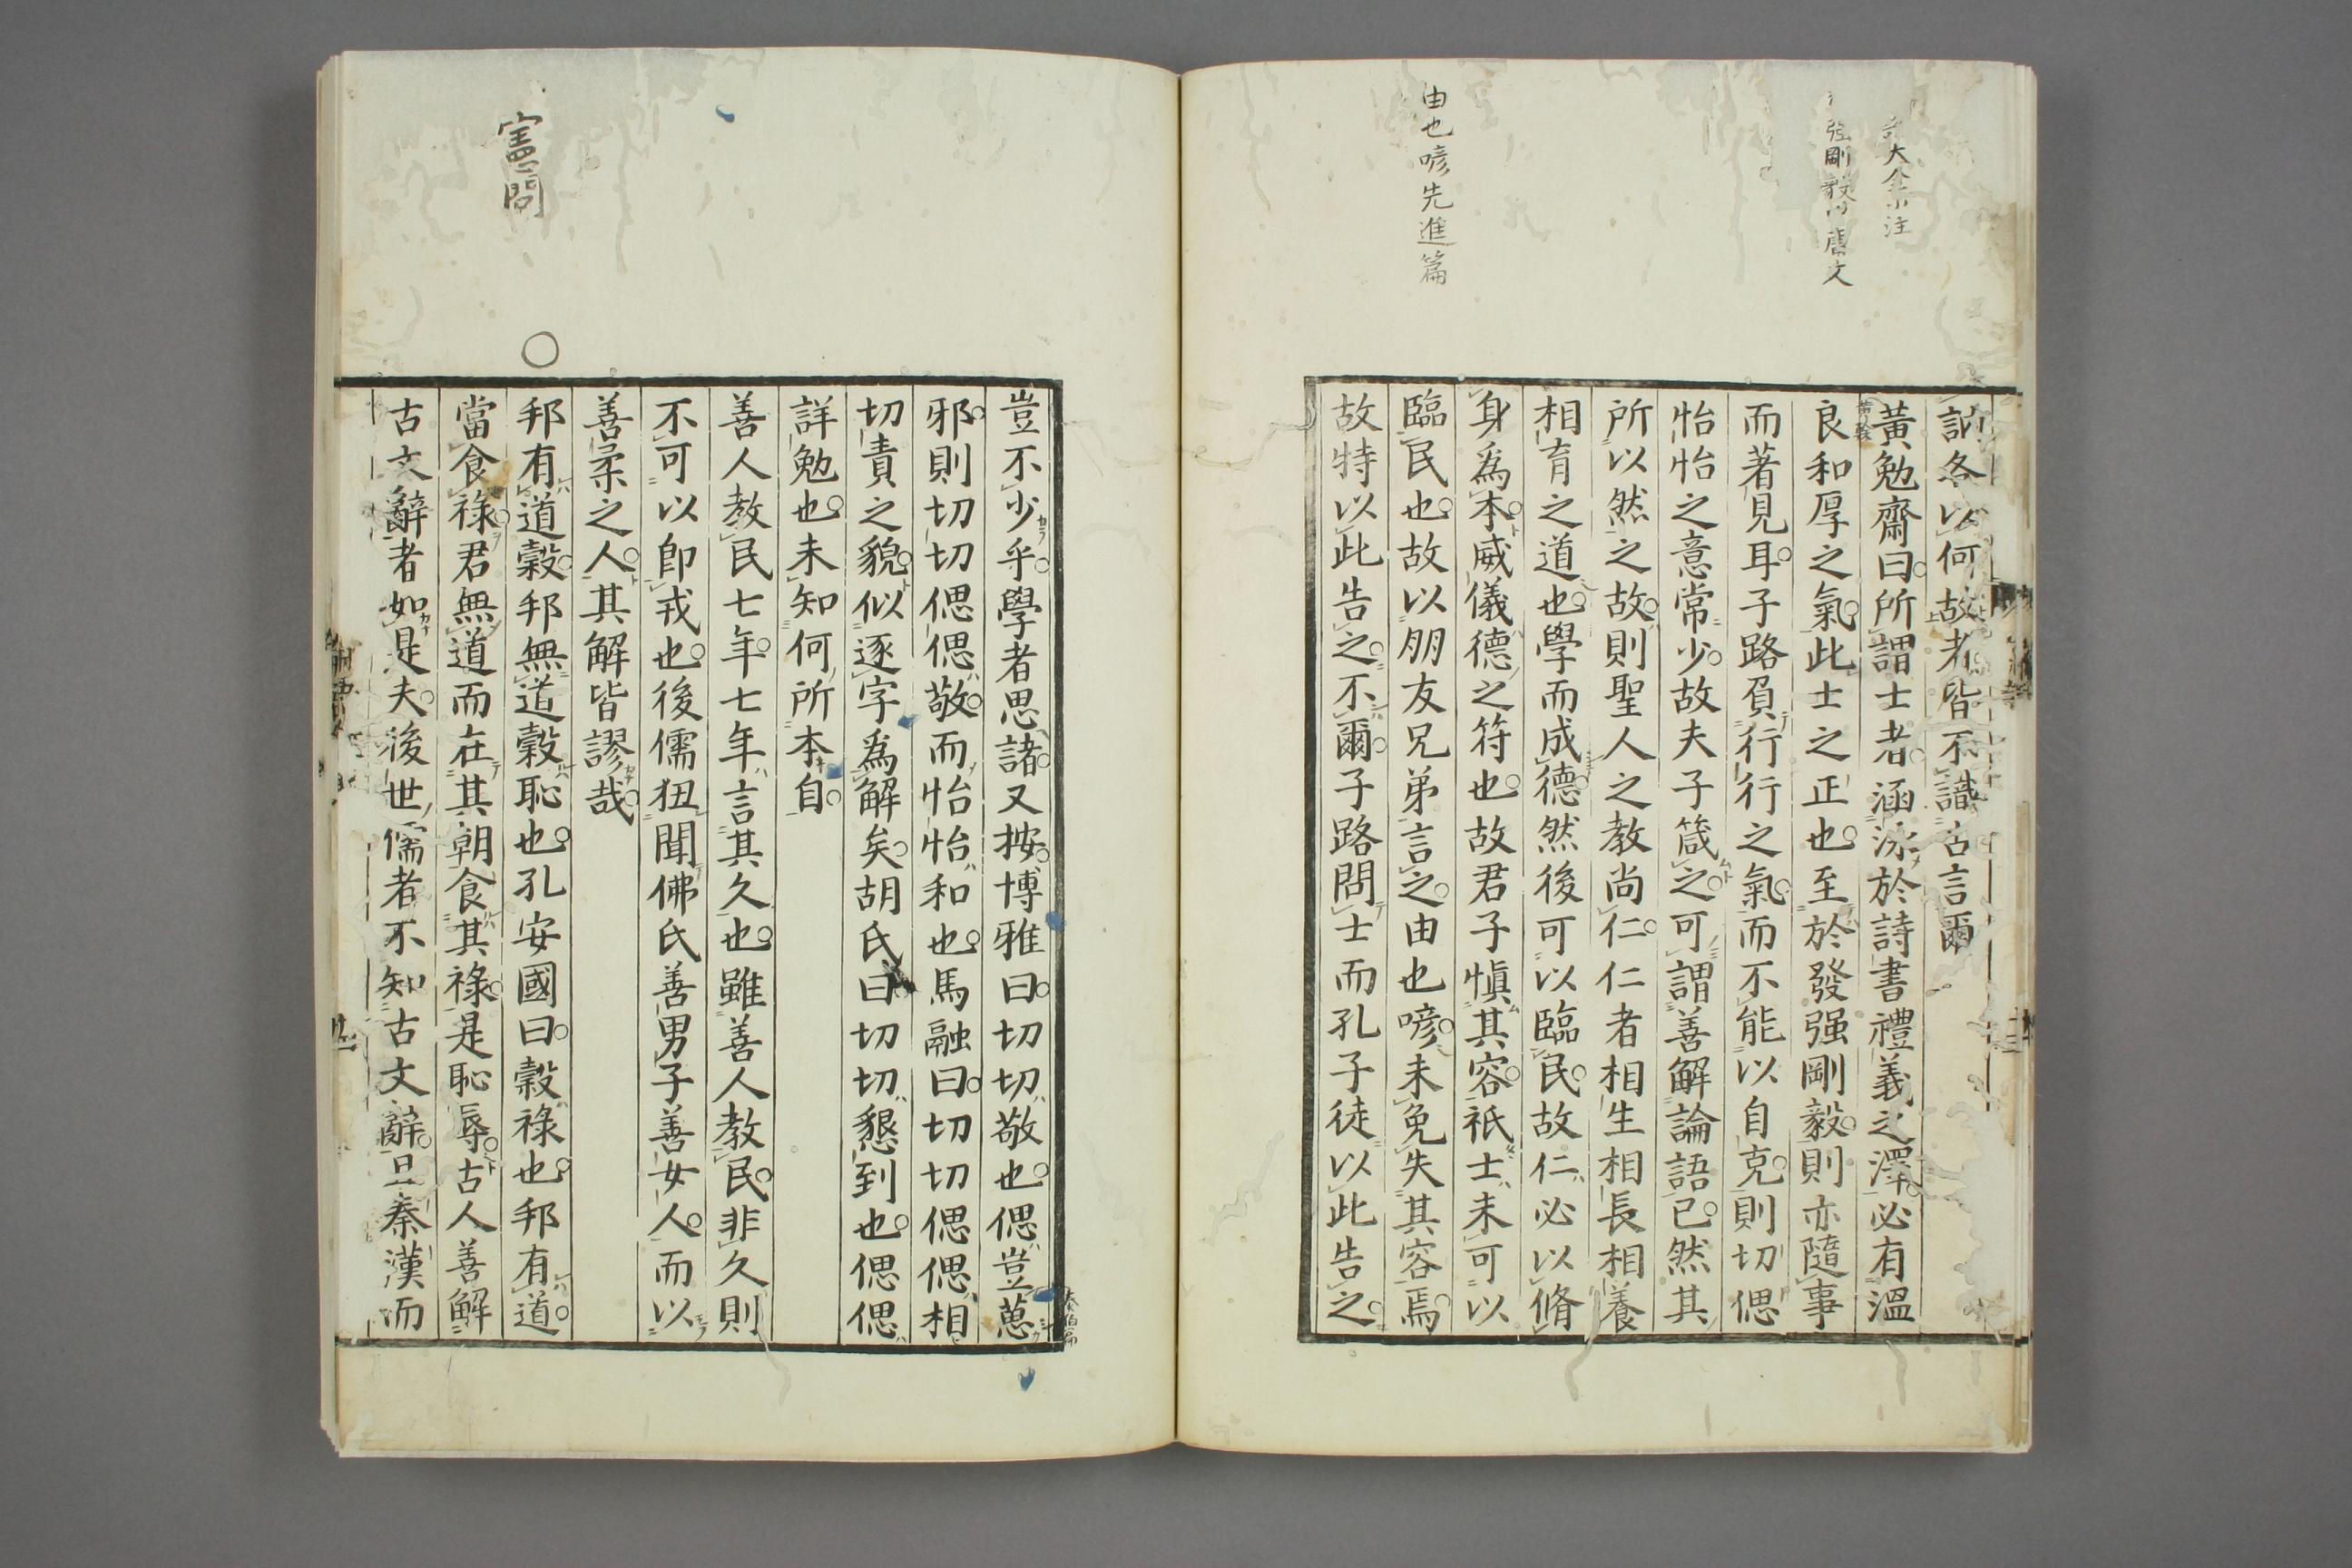 大全小注
強剛毅以舊文
由也喭先進篇
訥各以何故者皆不識古言爾
黃勉齋曰所謂士者涵泳於詩書禮義之澤必有溫
良和厚之氣此士之正也至於發强剛毅則亦隨事
而著見耳子路負行行之氣而不能以自克則切偲
怡怡之意常少故夫子箴之可謂善解論語已然其
所以然之故則聖人之教尚仁仁者相生相長相養
相育之道也學而成德然後可以臨民故仁必以脩
身爲本威儀德之符也故君子愼其容祇士未可以
臨民也故以朋友兄弟言之由也喭未免失其容焉
故特以此告之不爾子路問士而孔子徒以此告之
豈不少乎學者思諸又按博雅曰切切敬也偲豈葸
邪則切切偲偲敬而怡怡和也馬融曰切切偲偲相
切責之貌似逐字爲解矣胡氏曰切切懇到也偲偲
詳勉也未知何所本自
善人教民七年七年言其久也雖善人教民非久則
不可以卽戎也後儒狃聞佛氏善男子善女人而以
善柔之人其解皆謬哉
憲問
邦有道穀邦無道穀恥也孔安國曰穀祿也邦有道
當食祿君無道而在其朝食其祿是恥辱古人善解
古文辭者如是夫後世儒者不知古文辭且秦漢而